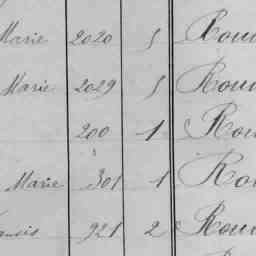 Marie 2020 5 Rou
Marie 2029 5 Rou
200 1 Rou
Marie 301 1 Rou
921 2 Rou